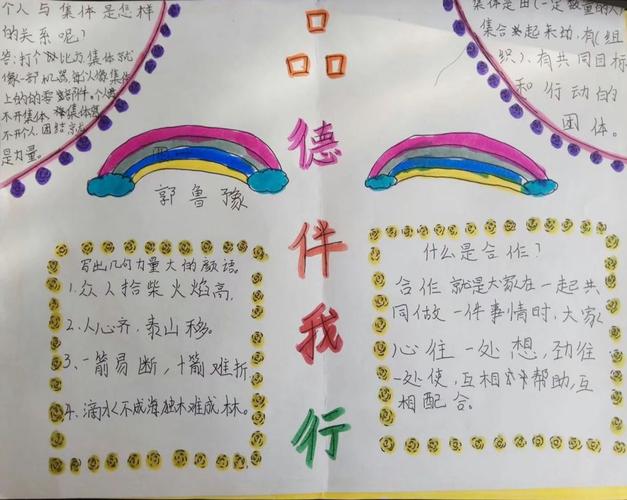 个人与集体是怎样
的关系呢?
答:打个比方集体就
像一部机器每个人像集体
上的的零部件。个人离
不开集体,集体离
不开个人,团结就
是力量。
品
德
伴
我
行
集体是由(一定数量的人)
集合起来动,有(组
织)、有共同目标
和行动的
团体。
郭鲁豫
写出几句力量大的颜语。
1.众人拾柴火焰高,
2.人心齐,泰山移。
3、一箭易断,十箭难折
4、滴水不成海独木难成林。
什么是合作?
合作就是大家在一起共
同做一件事情时,大家
心往一处想,劲往
一处使,互相帮助,互
相配合。